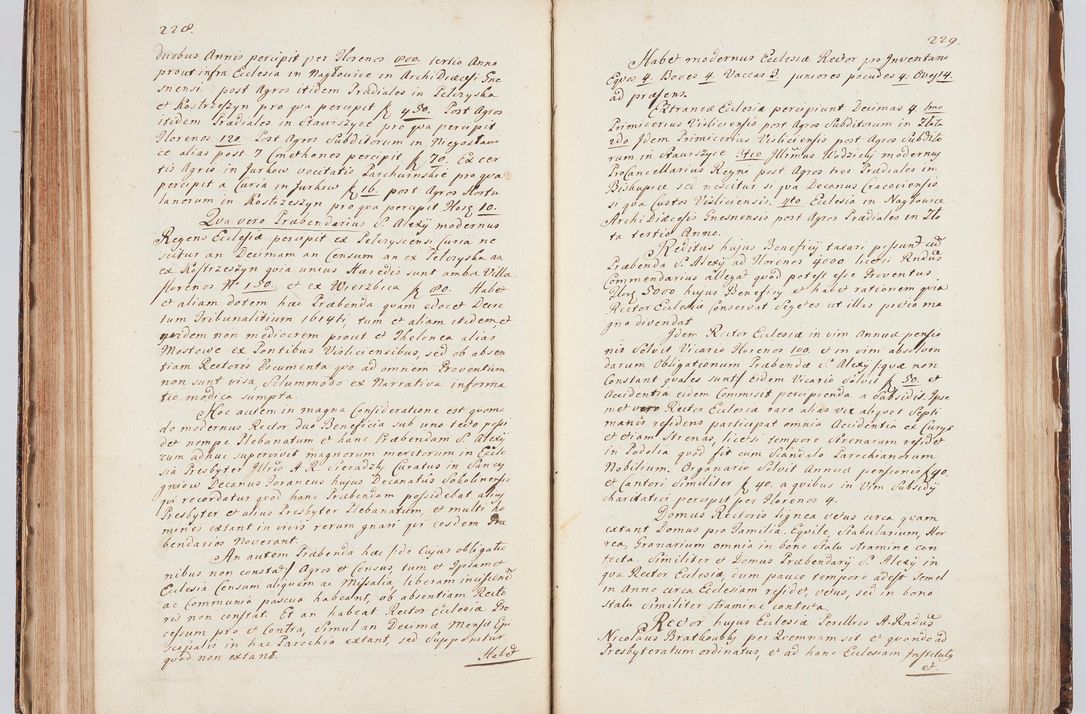 228.
duobus Annis percipit per Florenos 800. tertio Anno
prout infra Ecclesia in Nagłowice in ArchiDiæcesi Gne
snensi. post Agros itidem Prædiales in Pełczyska
et Kostrzeszyn pro qua percipit f 450. Post Agros
itidem Prædiales in Stawiszyce pro qua percipit
Florenos 120. Post Agros Subditorum in Niegosław
ce alias post 7 Cmethones percipit f 70. Ex cer
tis Agris in Jurkow vocitatis Parchwinskie pro qua
percipit a Curia in Jurkow f 16. post Agros Hortu
lanorum in Kostrzeszyn pro qua percipit Flos 10.
Qua vero Præbendarius S. Alexy modernus
Regens Ecclesiæ percipit ex Pełczyscensi Curia ne
scitur an Decimam an Censum an ex Pełczyska an
ex Kostrzeszyn quia unius Hæredis sunt ambæ Villæ
florenos Nro 150. et ex Wierzbica f 80. Habet
et aliam dotem hac Præbenda quam edocet Decre
tum Tribunalitium 1614ti, tum et aliam itidem et
quidem non mediocrem prout et Thelonea alias
Mostowe ex Pontibus Visliciensibus, sed ob absen
tiam Rectoris Documenta quo ad omnem Proventum
non sunt visa, Solummodo ex Narrativa informa
tio modica sumpta.
Hoc autem in magna Consideratione est quomo
do modernus Rector Duo Beneficia sub uno tecto possi
det nempe Plebanatum et hanc Præbendam S. Alexy
cum adhuc supervivit magnorum meritorum in Eccle
sia Presbyter Illris A. R. Sieradzki Curatus in Sancy
gniow Decanus Foraneus hujus Decanatus Sokolinensis
qui recordatur quod hanc Præbendam possidebat alius
Presbyter et alius Presbyter Plebanatum, et multi ho
mines extant in vivis rerum gnari qui eosdem Præ
bendarios Noverant.
An autem Præbenda hæc /:de Cujus obligatio
nibus non constat:/ Agros et Census, tum et Ipsamet
Ecclesia Censum aliquem ac Missalia, liberam invisiond
ac Communia pascua habeant, ob absentiam Recto
ris non constat. Et an habeat Rector Ecclesiæ Pro
cessum pro et Contra, Simul an Decimæ Mensæ Epi
scopalis in hac Parochia extant, sed Supponitur
quod non extant.
Habet
229.
Habet modernus Ecclesiæ Rector pro Inventario
Equos 4. Boves 4. Vaccas 3. juniores pecudes 4. Oves 14.
ad præsens.
Extraneæ Ecclesiæ percipiunt Decimas 4. 1mo
Primicerius Visliciensis post Agros Subditorum in Złota
2do Idem Primicerius Visliciensis post Agros Subdito
rum in Stawiszyce 3tio Illrimus Wodzicky modernus
ProCancellarius Regni post Agros tres Prædiales in
Biskupice sei nescitur si qua Decanus Cracoviensis
si qua Custos Visliciensis. 4to Ecclesia in Nagłowice
ArchiDiæcesis Gnesnensis post Agros Prædiales in Zło
ta tertio Anno.
Reditus hujus Beneficy taxari possunt cu
Præbenda S. Alexy ad Florenos 4000 licet Rndus
Commendarius allegat quod potest esse Proventus
Flor 5000 hujus Beneficy et habet rationem quia
Rector Ecclesiæ Conservat Segetes ut illas pretio ma
gno divendat.
Idem Rector Ecclesiæ in vim Annuæ pensio
nis Solvit Vicario Florenos 100. et in vim absolven
darum Obligationum Præbendæ S. Alexy /:quæ non
Constant quales sunt:/ Eidem Vicario Solvit f 50. et
Accidentia eidem Commisit percipienda a Subsidys. Ipse
met vero Rector Ecclesiæ raro alias vix aliquot Septi
manis residens participat omnia Accidentia ex Curys
et etiam Strenas, licet tempore Strenarum residet
in Podolia quod fit cum Scandalo Parochianorum
Nobilium. Organario Solvit Annuæ pensionis f 40.
et Cantori Similiter f 40. a quibus in Vim Subsidy
charitativi percipit per Florenos 4.
Domus Rectoris lignea vetus circa quam
extant Domus pro Familia. Equile Stabularium, Hor
rea, Granarium omnia in bono Statu Stramine con
tecta. Similiter et Domus Præbendary S. Alexy in
qua Rector Ecclesiæ cum pauco tempore adest Semel
in Anno circa Ecclesiam residet, vetus, sed in bono
Statu Similiter Stramine contecta.
Rector hujus Ecclesiæ Perillris A. Radus
Nicolaus Bratkoubky per Quemnam sit et quando ad
Presbyteratum ordinatus, et ad hanc Ecclesiam Institutus
et